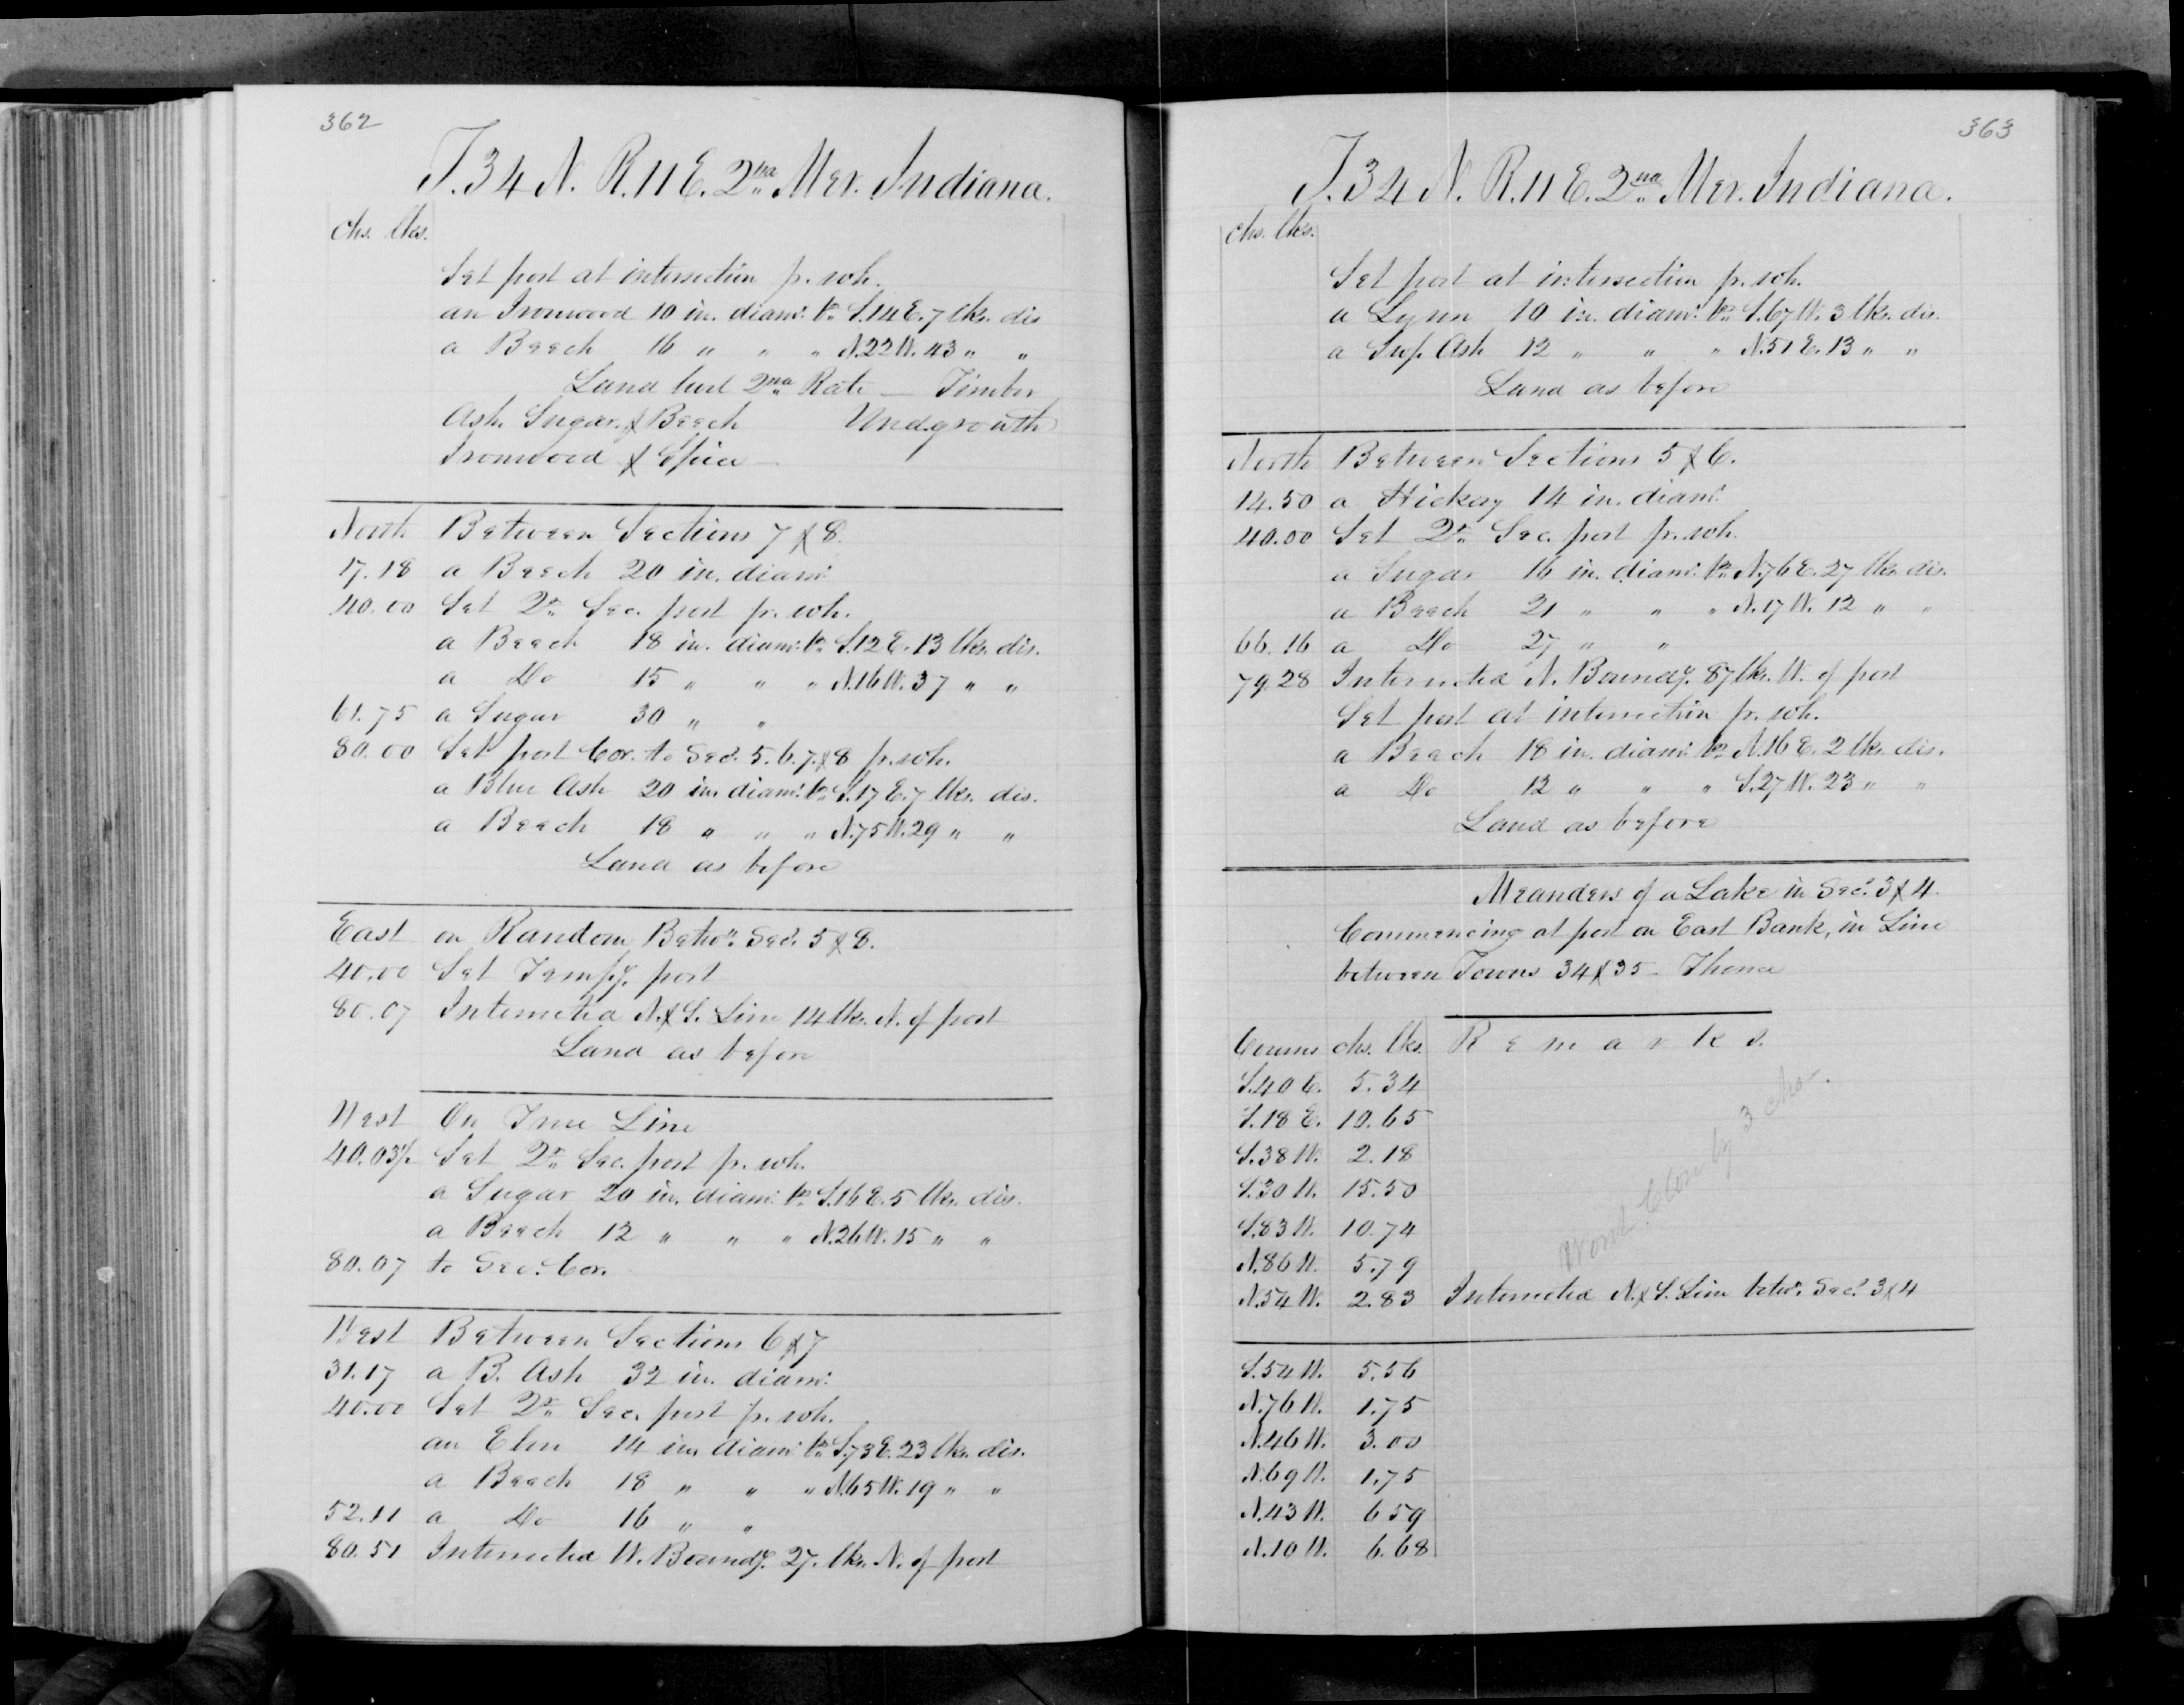 362
T. 34 N. R. 11 E. 2nd Mer. Indiana.
chs. lks.
Set post at intersection fr. wh.
an Ironwood 10 in. diamr. brs. S. 14 E. 7 lks. dis
a Beech 16 " " " N. 22 W. 43 " "
Land level 2nd Rate — Timber
Ash. Sugar. & Beech Undgrowth
Ironwood & Spice —
North Between Sections 7 & 8
17.18 a Beech 20 in. diamr.
40.00 Set Qr. Sec. post fr. wh.
a Beech 18 in. diamr. brs. S. 12 E. 13 lks. dis.
a Do 15 " " " N. 16 W. 37 " "
61.75 a Sugar 30 " "
80.00 Set post Cor. to Secs. 5. 6. 7. & 8 fr. wh.
a Blue Ash 20 in. diamr. brs. S. 17 E. 7 lks. dis.
a Beech 18 " " " N. 75 W. 29 " "
Land as before
East on Random Betwn. Secs. 5 & 8.
40.00 Set Tempy. post
80.07 Intersected N. & S. Line 14 lks. N. of post
Land as before
West On True Line
40.03½ Set Qr. Sec. post fr. wh.
a Sugar 20 in. diamr. brs. S. 16 E. 5 lks. dis.
a Beech 12 " " " N. 26 W. 15 " "
80.07 to Sec. Cor.
West Between Sections 6 & 7
31.17 a B. Ash 32 in. diamr.
40.00 Set Qr. Sec. post fr. wh.
an Elm 14 in. diamr. brs. S. 73 E. 23 lks. dis.
a Beech 18 " " " N. 65 W. 19 " "
52.11 a Do 16 " "
80.51 Intersected W. Boundy. 27. lks. N. of post
363
T. 34 N. R. 11 E. 2nd Mer. Indiana.
chs. lks.
Set post at intersection fr. wh.
a Lynn 10 in. diamr. brs. S. 67 W. 3 lks. dis.
a Swp. Ash 12 " " " N. 51 E. 13 " "
Land as before
North Between Sections 5 & 6.
14.50 a Hickory 14 in. diamr.
40.00 Set Qr. Sec. post fr. wh.
a Sugar 16 in. diamr. brs. N. 76 E. 27 lks. dis.
a Beech 21 " " " N. 17 W. 12 " "
66.16 a Do 27 " "
79.28 Intersected N. Boundy. 87 lks. W. of post
Set post at intersection fr. wh.
a Beech 18 in. diamr. brs. N. 16 E. 2 lks. dis.
a Do 12 " " " S. 27 W. 23 " "
Land as before
Meanders of a Lake in Secs. 3 & 4.
Commencing at post on East Bank, in Line
between Towns 34 & 35 — Thence
Course chs. lks. Remarks.
S. 40 E. 5.34
S. 18 E. 10.65
S. 38 W. 2.18
S. 30 W. 15.50
S. 83 W. 10.74
N. 86 W. 5.79
N. 54 W. 2.83 Intersected N. & S. Line betwn. Secs. 3 & 4
Wont Close by 3 chs.
S. 54 W. 5.56
N. 76 W. 1.75
N. 46 W. 3.00
N. 69 W. 1.75
N. 43 W. 6 59
N. 10 W. 6.68